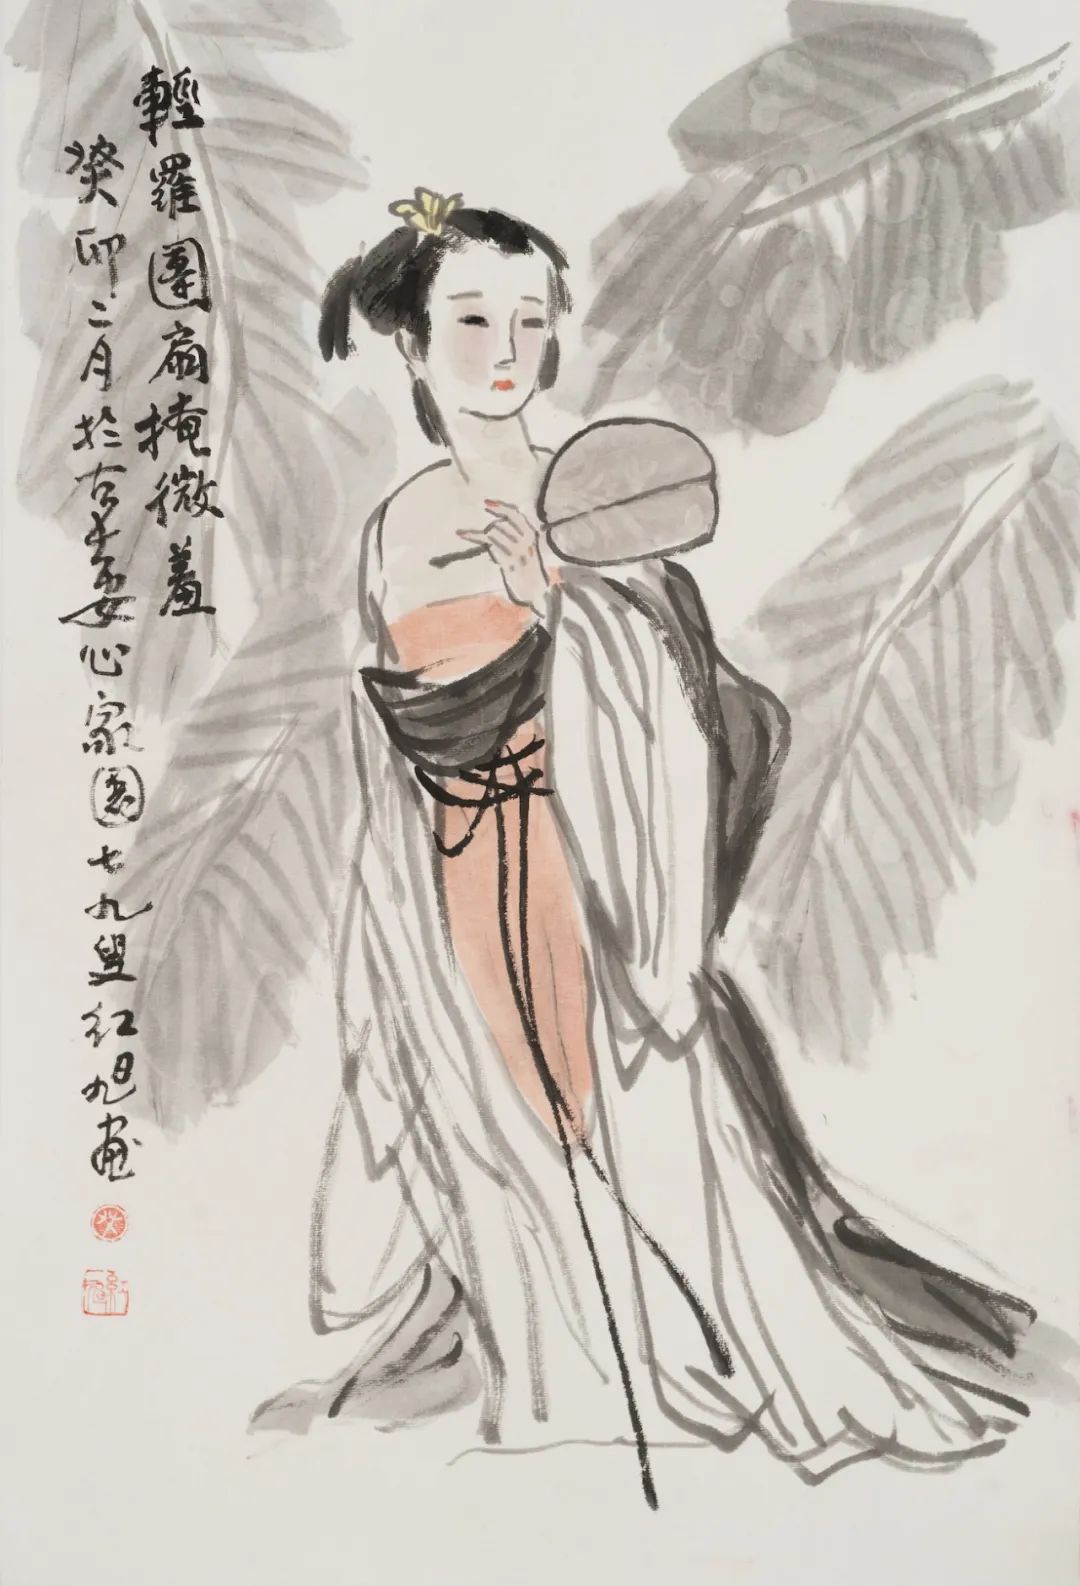 輕羅團扇掩微羞
癸卯二月於古婁心家園七九叟紅旭畫